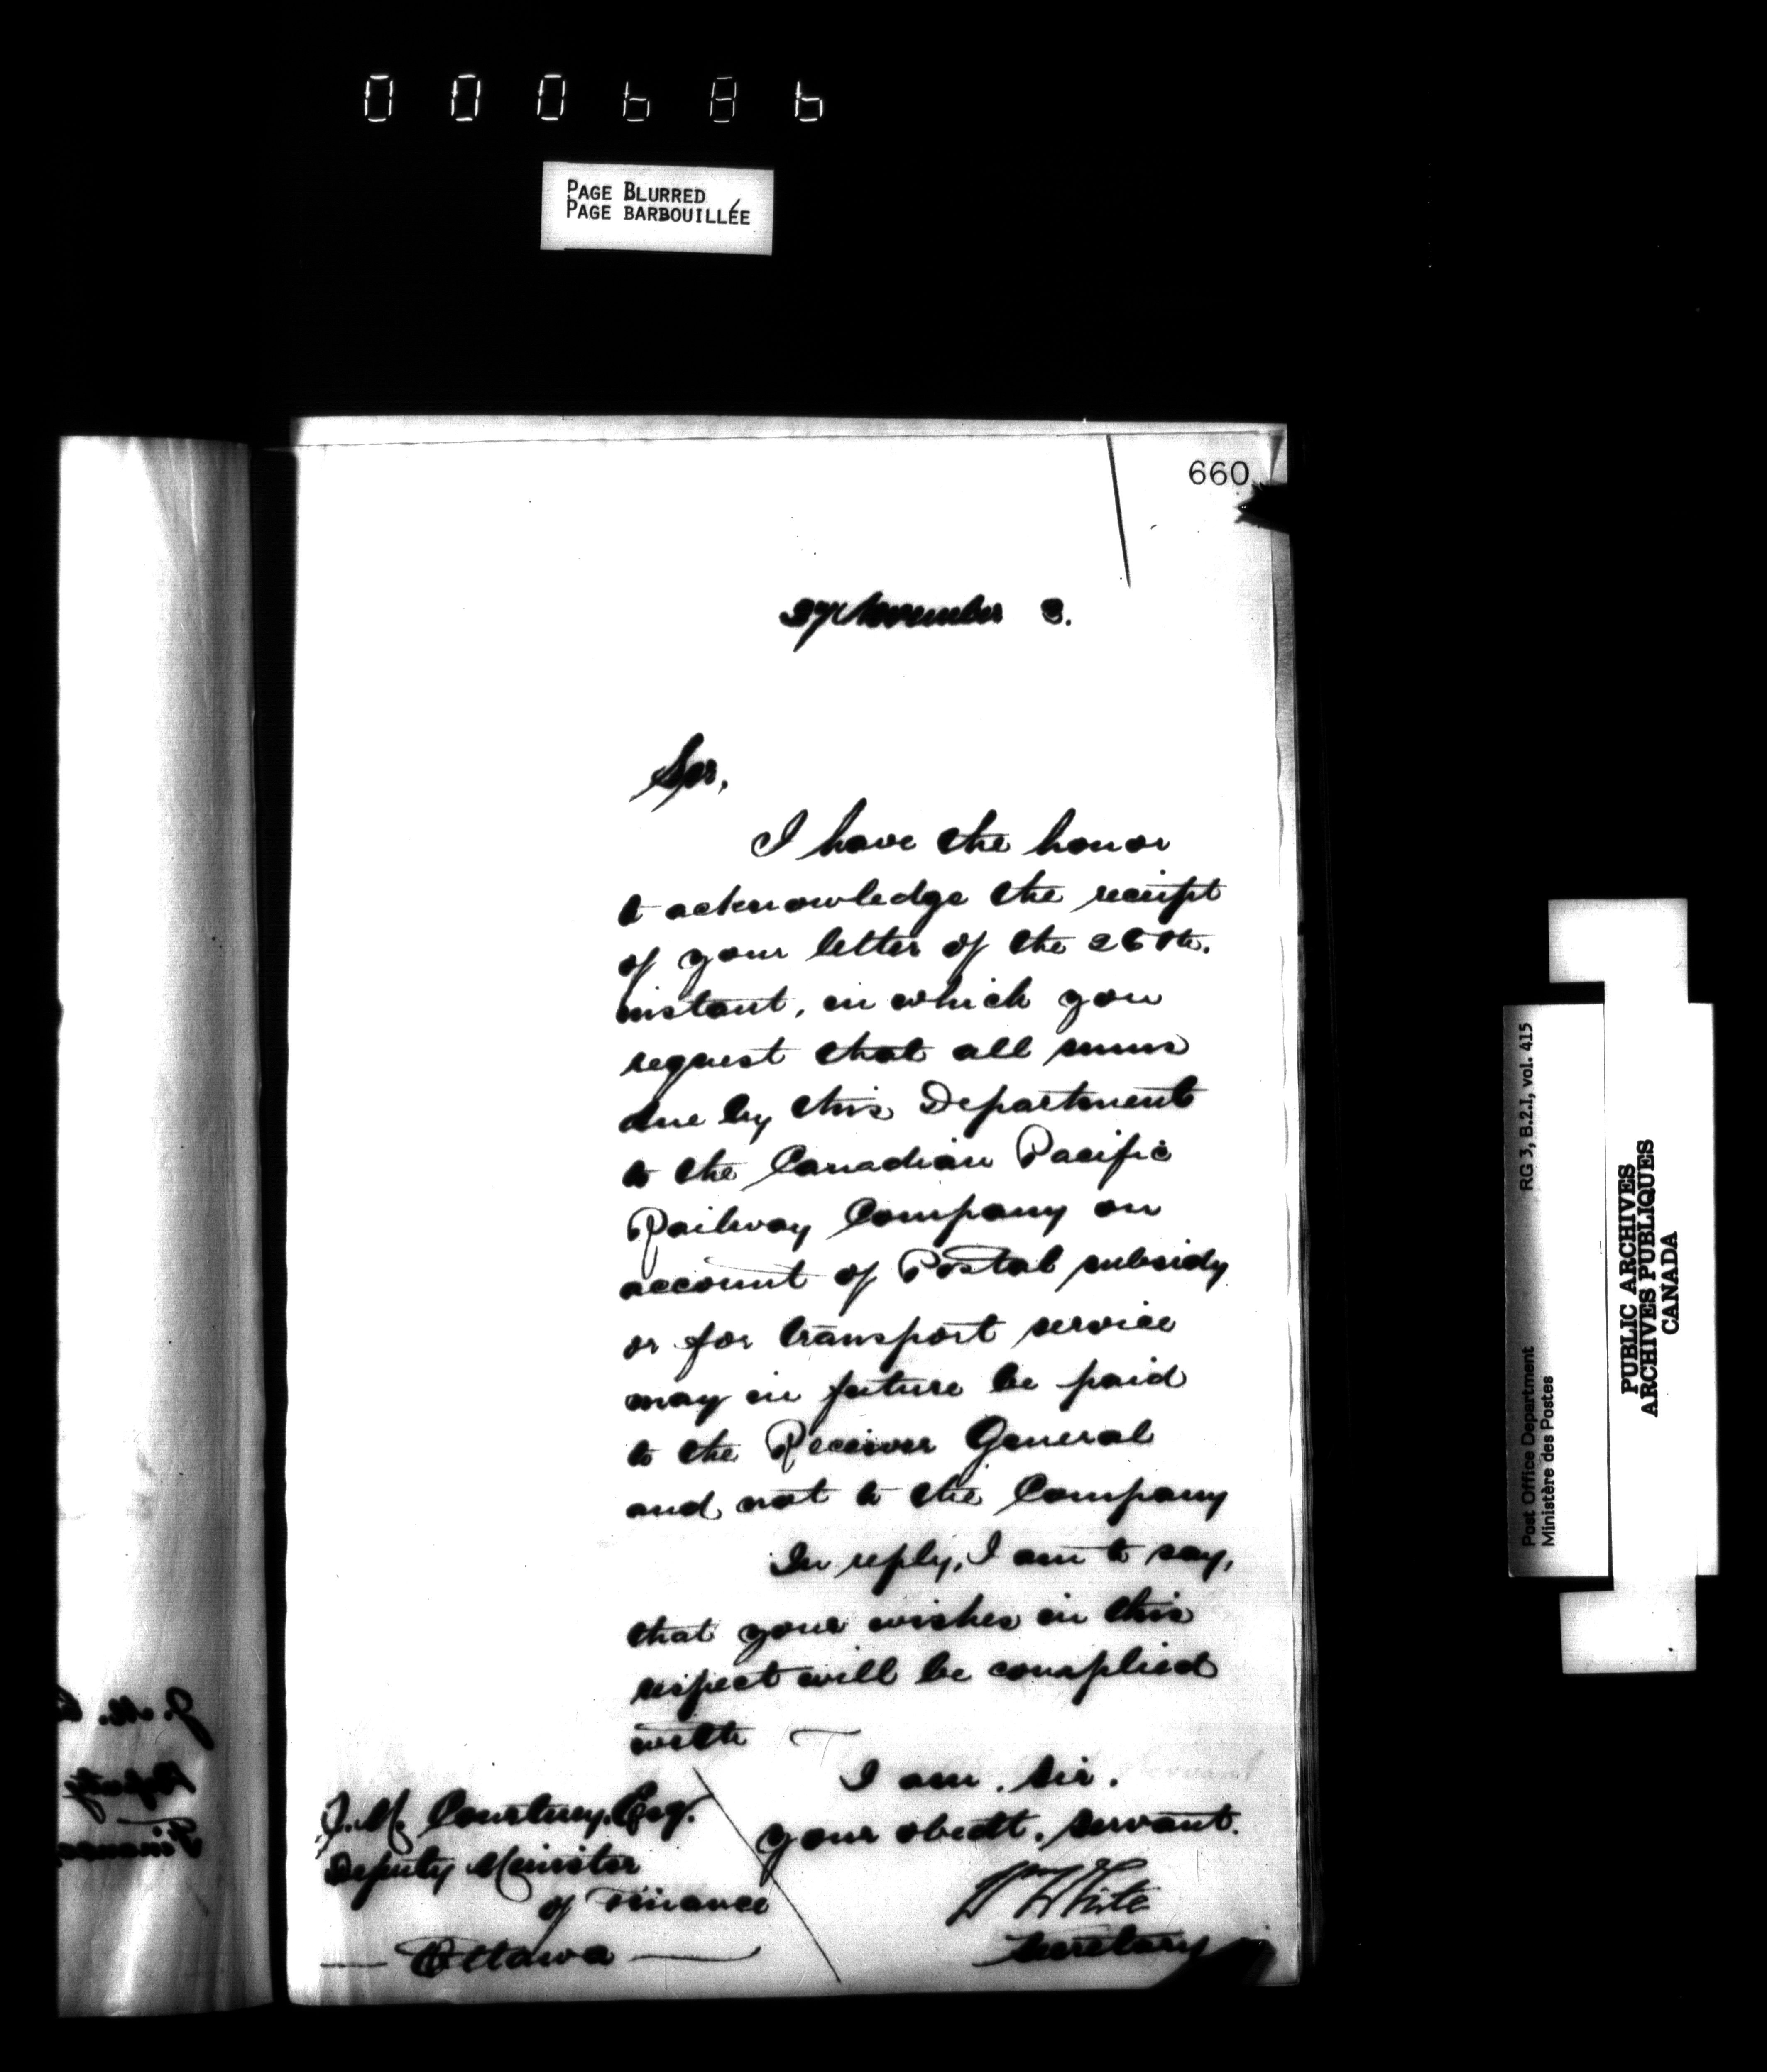 000686
PAGE BLURRED
PAGE BARBOUILLÉE
660
27 November 3.
Sir,
I have the honor
to acknowledge the receipt
of your letter of the 26th.
instant, in which you
request that all sums
due by this Department
to the Canadian Pacific
Railway Company on
account of Postal subsidy
or for transport service
may in future be paid
to the Receiver General
and not to the Company
In reply, I am to say,
that your wishes in this
respect will be complied
with
I am, Sir.
your obedt. servant.
Wm White
Secretary
J. M. Courtney, Esq.
Deputy Minister
of Finance
Ottawa
J. M.
Deputy
Finance
RG 3, B.2.I, vol. 415
Post Office Department
Ministère des Postes
PUBLIC ARCHIVES
ARCHIVES PUBLIQUES
CANADA